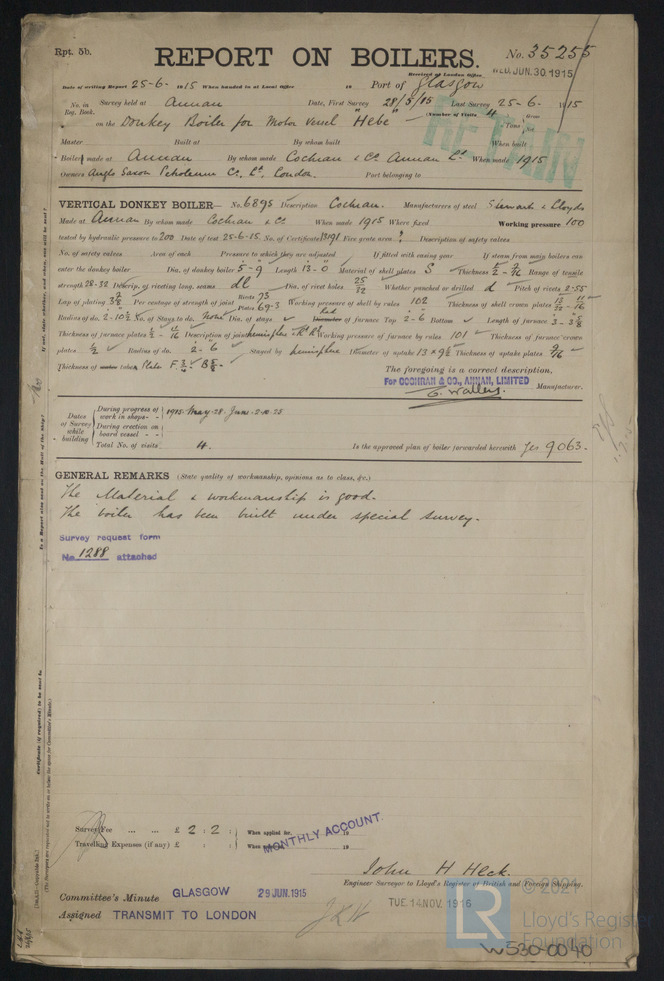 Rpt. 5b.
REPORT ON BOILERS.
No. 35255
Received at London Office WED. JUN. 30 1915
Date of writing Report 25-6- 1915 When handed in at Local Office 19 Port of Glasgow
No. in Reg. Book. Survey held at Annan Date, First Survey 28/5/15 Last Survey 25-6- 1915
(Number of Visits 4
on the Donkey Boiler for Motor Vessel "Hebe" Tons
RETAIN
Master Built at By whom built When built
Boiler made at Annan By whom made Cochran & Co. Annan Ld. When made 1915
Owners Anglo Saxon Petroleum Co. Ld. London. Port belonging to
VERTICAL DONKEY BOILER— No. 6895 Description Cochran. Manufacturers of steel Stewarts & Lloyds
Made at Annan By whom made Cochran & Co. When made 1915 Where fixed Working pressure 100
tested by hydraulic pressure to 200 Date of test 25-6-15. No. of Certificate 13191 Fire grate area ? Description of safety valves
No. of safety valves Area of each Pressure to which they are adjusted If fitted with easing gear If steam from main boilers can
enter the donkey boiler Dia. of donkey boiler 5-9 Length 13-0 Material of shell plates S Thickness Range of tensile
strength 28-32 Descrip. of riveting long. seams dl Dia. of rivet holes 25/32 Whether punched or drilled d Pitch of rivets 2.55
Lap of plating 3 7/8 Per centage of strength of joint Rivets 73 Plates 69.3 Working pressure of shell by rules 102 Thickness of shell crown plates
Radius of do. No. of Stays to do. None Dia. of stays Diameter of furnace Top 2-6 Bottom Length of furnace
Thickness of furnace plates Description of joint Working pressure of furnace by rules 101 Thickness of furnace crown
plates 1/2 Radius of do. 2-6 Stayed by hemisphere Diameter of uptake Thickness of uptake plates 9/16
Thickness of water tubes
The foregoing is a correct description,
For COCHRAN & CO., ANNAN, LIMITED
Manufacturer.
Dates of Survey while building
During progress of work in shops - - 1915. May. 28. June. 2. 10. 25
During erection on board vessel - -
Total No. of visits 4.
Is the approved plan of boiler forwarded herewith Yes 9063.
GENERAL REMARKS (State quality of workmanship, opinions as to class, &c.)
The Material & workmanship is good.
The boiler has been built under special survey.
Survey request form
No. 1288 attached
Survey Fee ... ... £ 2 : 2 : When applied for, 19
Travelling Expenses (if any) £ : : When 19
MONTHLY ACCOUNT
John H Heck.
Engineer Surveyor to Lloyd's Register of British and Foreign Shipping.
Committee's Minute GLASGOW 29 JUN. 1915
TUE. 14 NOV. 1916
Assigned TRANSMIT TO LONDON
LR
© 2021
Lloyd's Register
Foundation
W530-0040